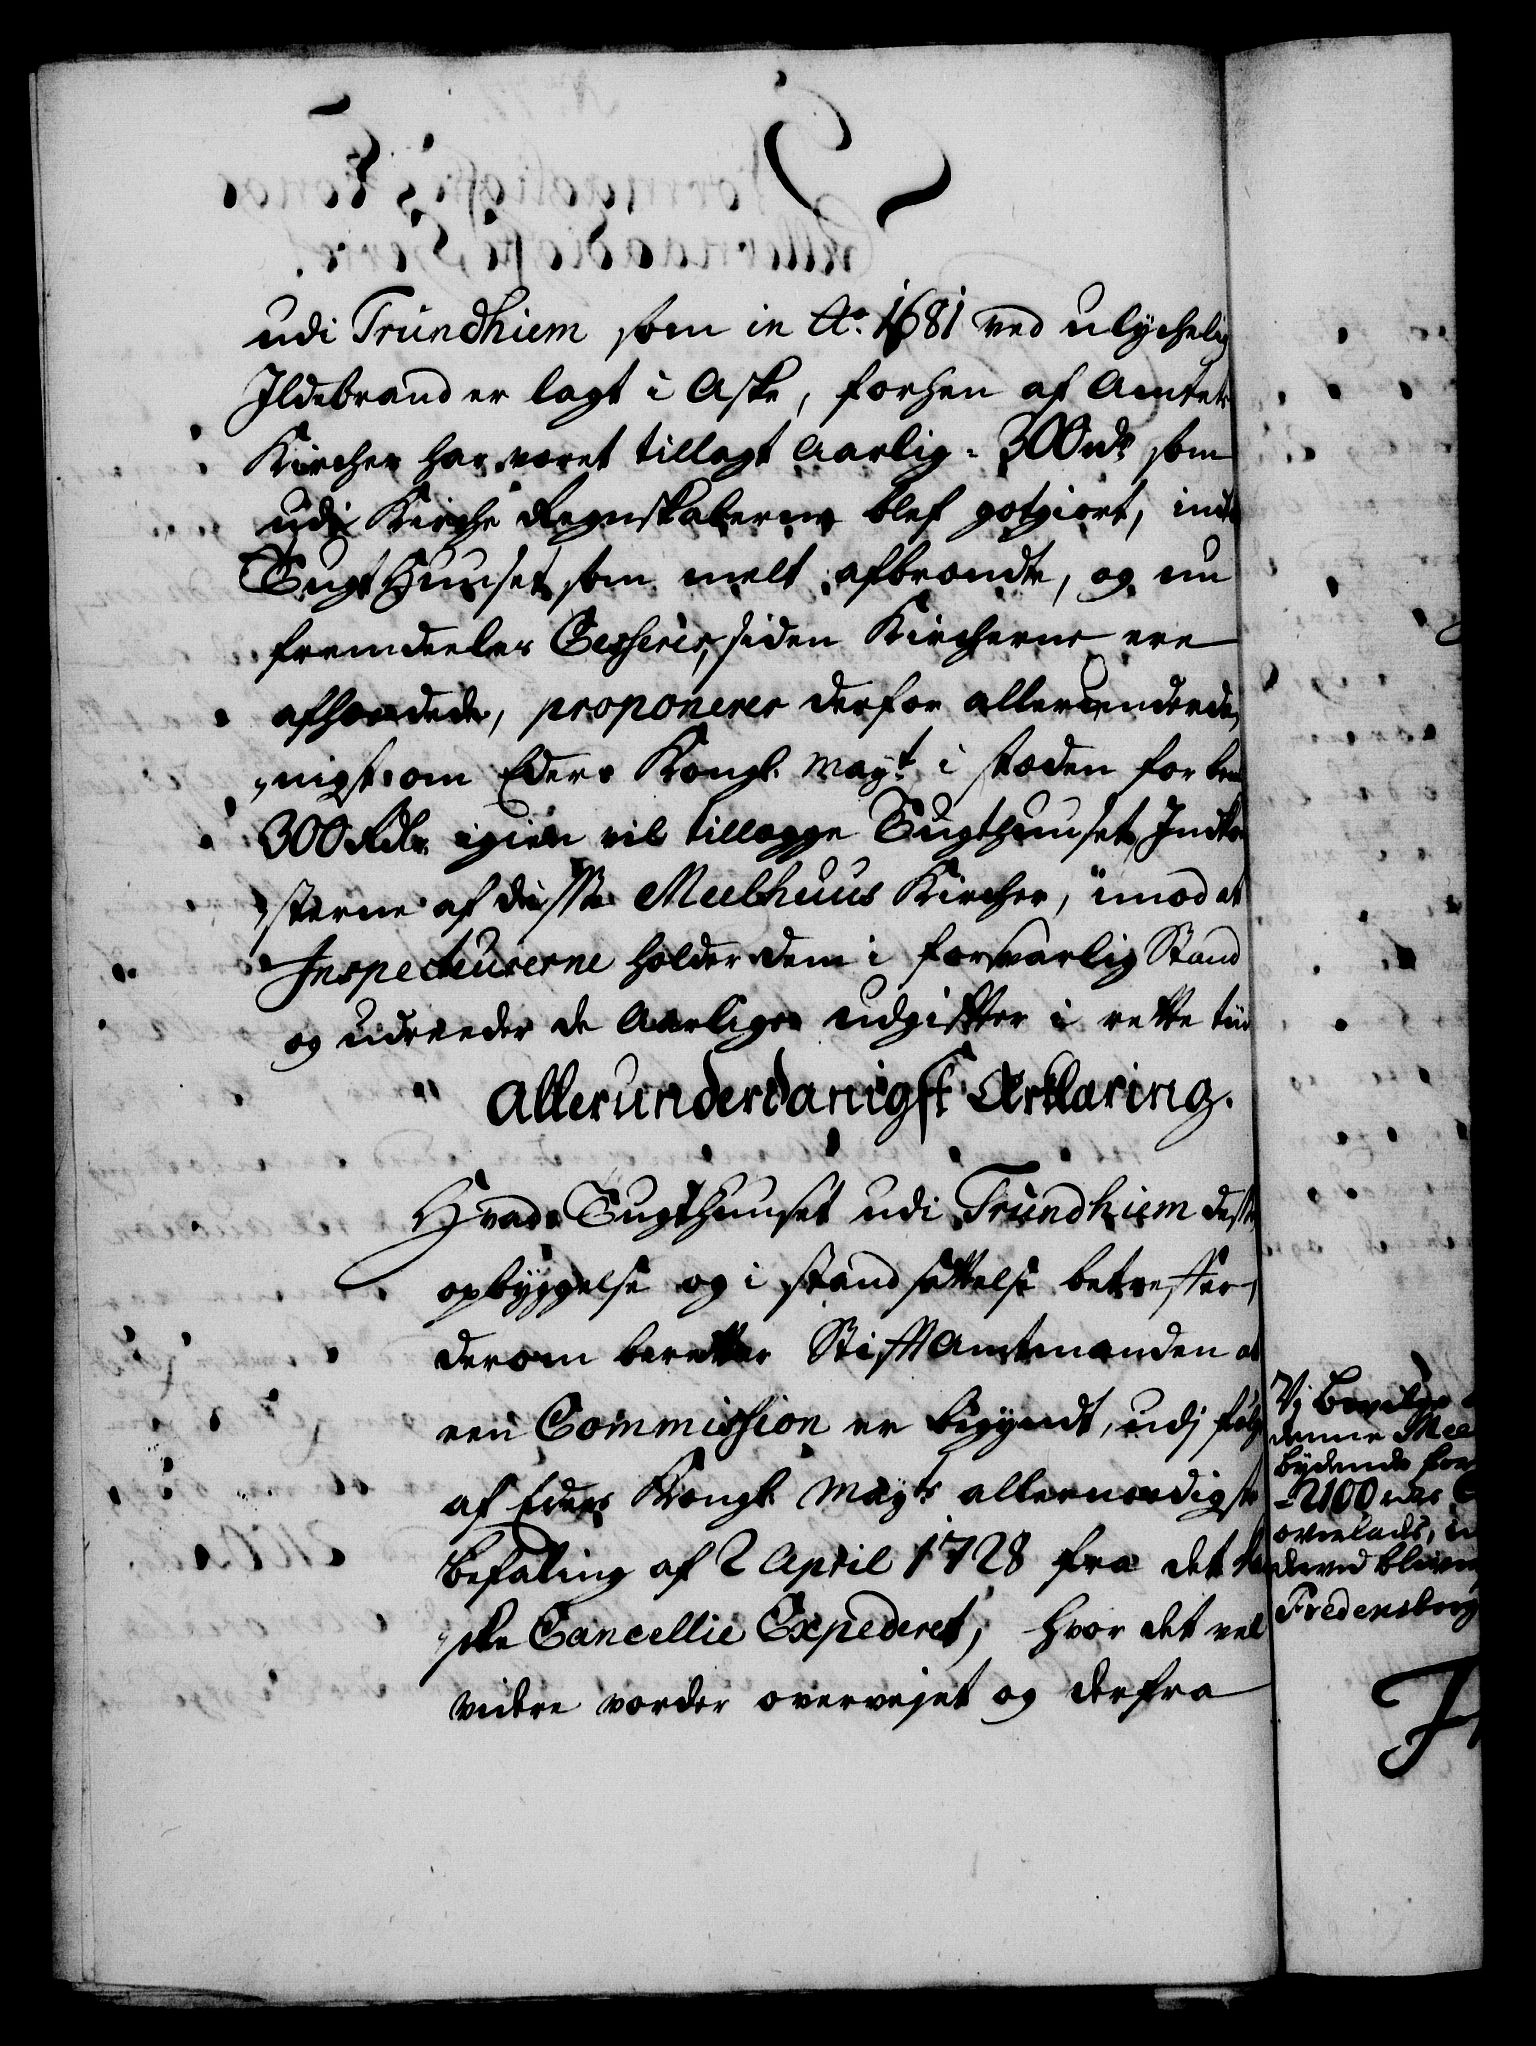 udi Trundhiem som in Ao. 1681 ved ulychelig
Ildebrand er lagt i Aske, forhen af Amtets
Kircher har været tillagt Aarlig = 300 rdr som
udi Kirche Regnskaberne blef gotgiort, indt
Tugt Huuset som melt afbrændte, og nu
fremdeeles Cesserer, siden Kircherne ere
afhændede, proponerer derfor allerunderda
nigst om Eders Kongl. Mayt. i stæden for bem
300 Rdr. igien vil tillægge Tugthuuset Indkom
sterne af disse Meelhuus Kircher, imod at
Inspecteurerne holder dem i forsvarlig Stand
og udreeder de Aarlige udgifter i rette tiid
Allerunderdanigst Erklæring.
Hvad Tugthuuset udi Trundhiem dessen
opbyggelse og i stand settelse betreffer,
derom beretter Stifft Amtmanden at
een Commission er begyndt, udj følge
af Eders Kongl. Mayts allernaadigste
Befaling af 2 April 1728 fra det
ske Cancellie Expederet, hvor det vel
videre vorder overvejet og derfra
Vj Bevilge
denne Mee
bydende for
= 2100 rdr
overlades,
derved bliver
Fredensborg